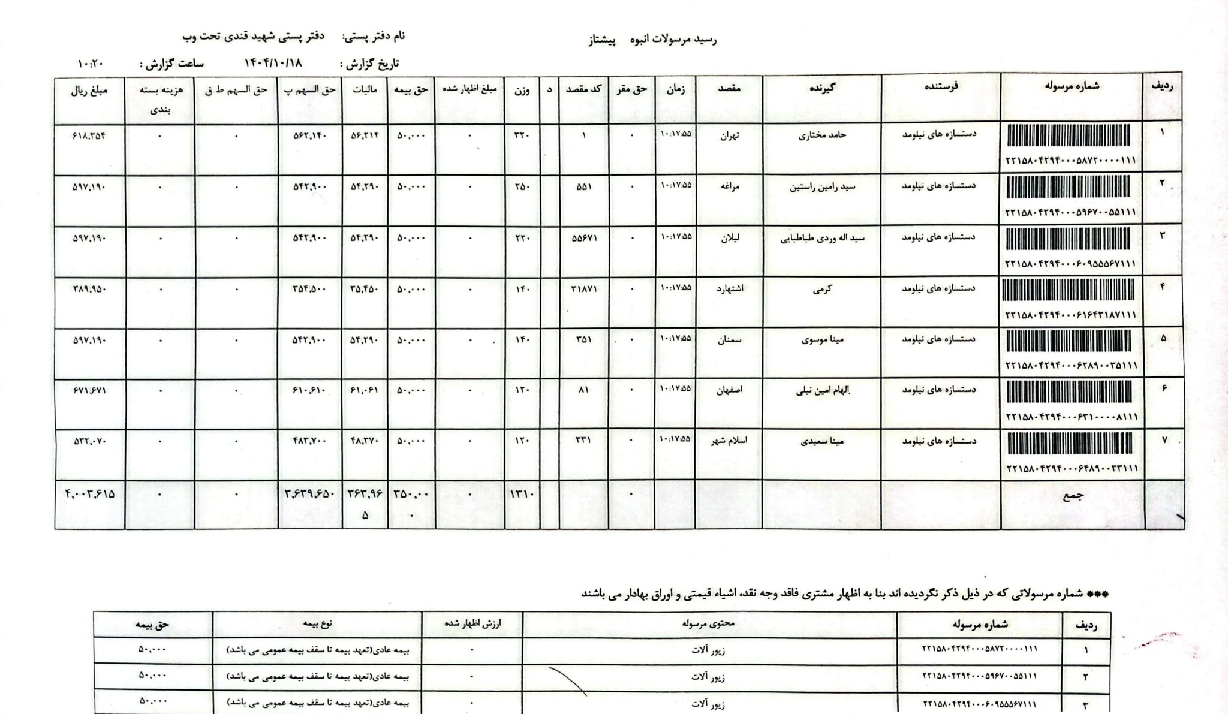 رسید مرسولات انبوه پیشتاز
نام دفتر پستی: دفتر پستی شهید قندی تحت وب
تاریخ گزارش : ۱۴۰۴/۱۰/۱۸ ساعت گزارش : ۱۰:۲۰
ردیف شماره مرسوله فرستنده گیرنده مقصد زمان حق مقر کد مقصد د وزن مبلغ اظهار شده حق بیمه مالیات حق السهم پ حق السهم ط ق هزینه بسته بندی مبلغ ریال
۱ دستسازه های نیلومد حامد مختاری تهران ۱۰:۱۷:۵۵ ۰ ۱ ۳۲۰ ۰ ۵۰,۰۰۰ ۵۶,۲۱۴ ۵۶۲,۱۴۰ ۰ ۰ ۶۱۸,۳۵۴
۲۲۱۵۸۰۴۲۹۴۰۰۰۵۸۷۲۰۰۰۰۱۱۱
۲ دستسازه های نیلومد سید رامین راستین مراغه ۱۰:۱۷:۵۵ ۰ ۵۵۱ ۲۵۰ ۰ ۵۰,۰۰۰ ۵۴,۲۹۰ ۵۴۲,۹۰۰ ۰ ۰ ۵۹۷,۱۹۰
۲۲۱۵۸۰۴۲۹۴۰۰۰۵۹۶۷۰۰۵۵۱۱۱
۳ دستسازه های نیلومد سید اله وردی طباطبایی لیلان ۱۰:۱۷:۵۵ ۰ ۵۵۶۷۱ ۲۲۰ ۰ ۵۰,۰۰۰ ۵۴,۲۹۰ ۵۴۲,۹۰۰ ۰ ۰ ۵۹۷,۱۹۰
۲۲۱۵۸۰۴۲۹۴۰۰۰۶۰۹۵۵۵۶۷۱۱۱
۴ دستسازه های نیلومد کرمی اشتهارد ۱۰:۱۷:۵۵ ۰ ۳۱۸۷۱ ۱۴۰ ۰ ۵۰,۰۰۰ ۳۵,۴۵۰ ۳۵۴,۵۰۰ ۰ ۰ ۳۸۹,۹۵۰
۲۲۱۵۸۰۴۲۹۴۰۰۰۶۱۶۴۳۱۸۷۱۱۱
۵ دستسازه های نیلومد مینا موسوی سمنان ۱۰:۱۷:۵۵ ۰ ۳۵۱ ۱۴۰ ۰ ۵۰,۰۰۰ ۵۴,۲۹۰ ۵۴۲,۹۰۰ ۰ ۰ ۵۹۷,۱۹۰
۲۲۱۵۸۰۴۲۹۴۰۰۰۶۲۸۹۰۰۳۵۱۱۱
۶ دستسازه های نیلومد الهام امین نیلی اصفهان ۱۰:۱۷:۵۵ ۰ ۸۱ ۱۲۰ ۰ ۵۰,۰۰۰ ۶۱,۰۶۱ ۶۱۰,۶۱۰ ۰ ۰ ۶۷۱,۶۷۱
۲۲۱۵۸۰۴۲۹۴۰۰۰۶۳۱۰۰۰۰۸۱۱۱
۷ دستسازه های نیلومد مینا سعیدی اسلام شهر ۱۰:۱۷:۵۵ ۰ ۳۳۱ ۱۲۰ ۰ ۵۰,۰۰۰ ۴۸,۳۷۰ ۴۸۳,۷۰۰ ۰ ۰ ۵۳۲,۰۷۰
۲۲۱۵۸۰۴۲۹۴۰۰۰۶۴۸۹۰۰۳۳۱۱۱
جمع ۰ ۱۳۱۰ ۰ ۳۵۰,۰۰۰ ۳۶۳,۹۶۵ ۳,۶۳۹,۶۵۰ ۰ ۰ ۴,۰۰۳,۶۱۵
*** شماره مرسولاتی که در ذیل ذکر نگردیده اند بنا به اظهار مشتری فاقد وجه نقد، اشیاء قیمتی و اوراق بهادار می باشند
ردیف شماره مرسوله محتوی مرسوله ارزش اظهار شده نوع بیمه حق بیمه
۱ ۲۲۱۵۸۰۴۲۹۴۰۰۰۵۸۷۲۰۰۰۰۱۱۱ زیور آلات ۰ بیمه عادی(تعهد بیمه تا سقف بیمه عمومی می باشد) ۵۰,۰۰۰
۲ ۲۲۱۵۸۰۴۲۹۴۰۰۰۵۹۶۷۰۰۵۵۱۱۱ زیور آلات ۰ بیمه عادی(تعهد بیمه تا سقف بیمه عمومی می باشد) ۵۰,۰۰۰
۳ ۲۲۱۵۸۰۴۲۹۴۰۰۰۶۰۹۵۵۵۶۷۱۱۱ زیور آلات ۰ بیمه عادی(تعهد بیمه تا سقف بیمه عمومی می باشد) ۵۰,۰۰۰